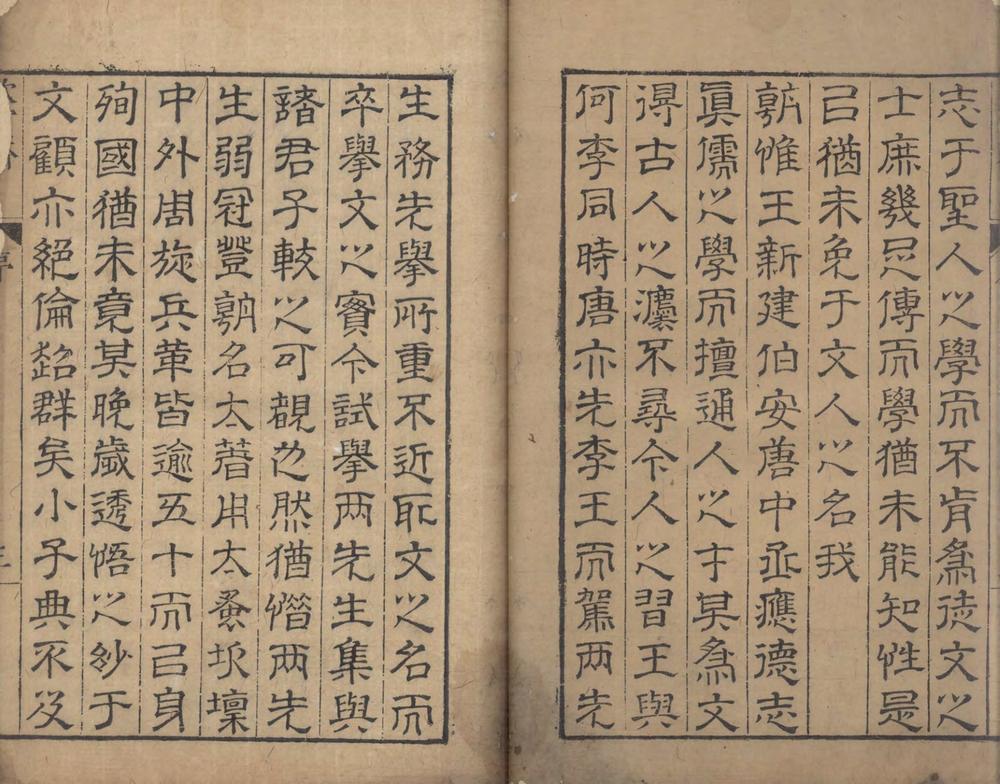 志于聖人之學而不肯為徒文之
士庶幾足傳而學猶未能知性是
已猶未免于文人之名我
朝惟王新建伯安唐中丞應德志
眞儒之學而擅通人之才其為文
得古人之灋不尋今人之習王與
何李同時唐亦先李王而駕兩先
生務先舉所重不近取文之名而
卒舉文之實今試舉兩先生集與
諸君子較之可覩也然猶惜兩先
生弱冠登朝名太著用太蚤坎壈
中外周旋兵革皆逾五十而已身
殉國猶未竟其晚歲透悟之妙于
文顧亦絕倫超群矣小子典不及
序
三